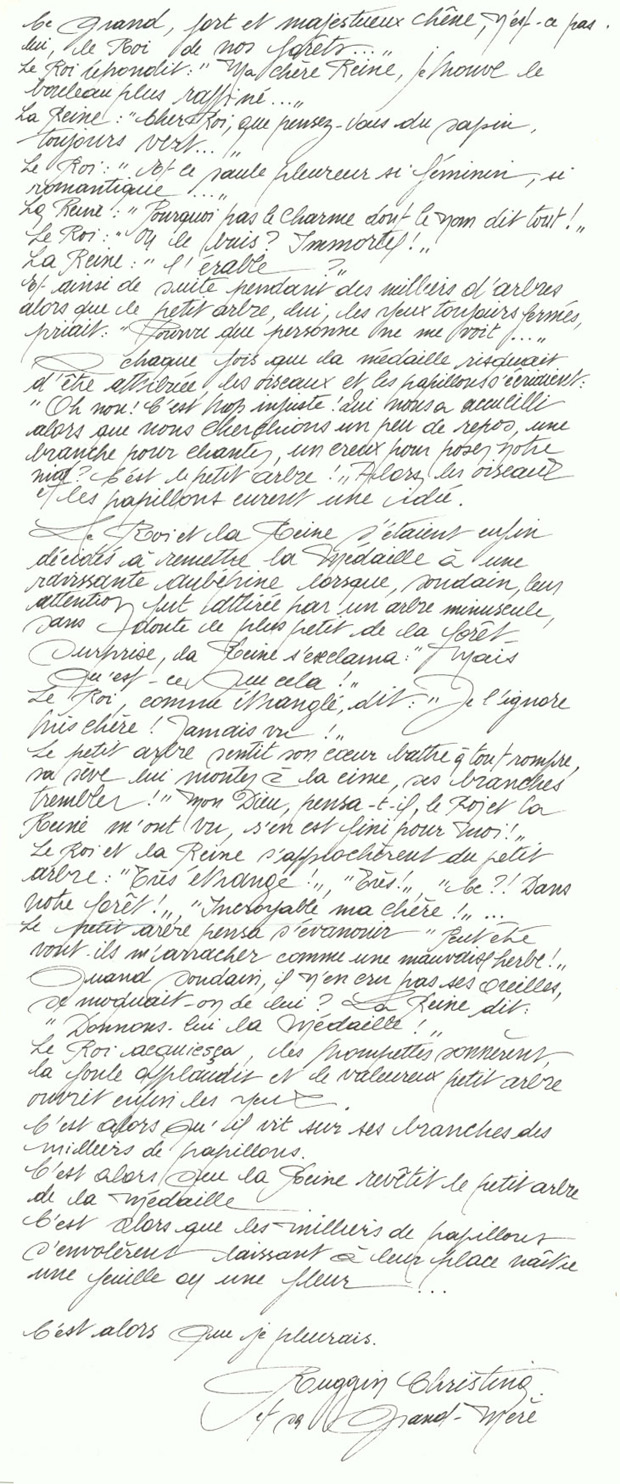 Ce grand, fort et majestueux chêne, n'est-ce pas
lui, le Roi de nos forêts...."
Le Roi répondit : "Ma chère Reine, je trouve le
bouleau plus raffiné...."
La Reine : "Cher Roi, que pensez-vous du sapin,
toujours vert..."
Le Roi : "Et ce saule pleureur si féminin, si
romantique ...."
La Reine : "Pourquoi pas le charme dont le nom dit tout !"
Le Roi : "Ou le buis ? Immortel !"
La Reine : "l'érable ?"
Et ainsi de suite pendant des milliers d'arbres
alors que le petit arbre, lui, les yeux toujours fermés,
priait : "Pourvu que personne ne me voit ...."
A chaque fois que la médaille risquait
d'être attribuée les oiseaux et les papillons s'écriaient :
"Oh non ! C'est trop injuste ! Qui nous a accueilli
alors que nous cherchions un peu de repos, une
branche pour chanter, un creux pour poser notre
nid ? C'est le petit arbre !" Alors les oiseaux
et les papillons eurent une idée.
Le Roi et la Reine s'étaient enfin
décidés à remettre la Médaille à une
ravissante aubépine lorsque, soudain, leur
attention fut attirée par un arbre minuscule,
sans doute le plus petit de la forêt.
Surprise, la Reine s'exclama : "Mais
qu'est-ce que cela !"
Le Roi, comme étranglé, dit : "Je l'ignore
très chère ! Jamais vu !"
Le petit arbre sentit son cœur battre à tout rompre,
sa sève lui monter à la cime, ses branches
trembler ! "Mon Dieu, pensa-t-il, le Roi et la
Reine m'ont vu, s'en est fini pour moi !"
Le Roi et la Reine s'approchèrent du petit
arbre : "Très étrange !", "Très !", "Ce ?! Dans
notre forêt !", "Incroyable ma chère !" ...
Le petit arbre pensa s'évanouir "Peut-être
vont-ils m'arracher comme une mauvaise herbe !"
Quand soudain, il n'en cru pas ses oreilles,
se moquait-on de lui ? La Reine dit :
"Donnons-lui la Médaille !"
Le Roi acquiesça, les trompettes sonnèrent,
la foule applaudit et le valeureux petit arbre
ouvrit enfin les yeux.
C'est alors qu'il vit sur ses branches des
milliers de papillons.
C'est alors que la Reine revêtit le petit arbre
de la Médaille
C'est alors que les milliers de papillons
s'envolèrent laissant à leur place naître
une feuille ou une fleur ...
C'est alors que je pleurais.
Ruggin Christina
et sa Grand-Mère